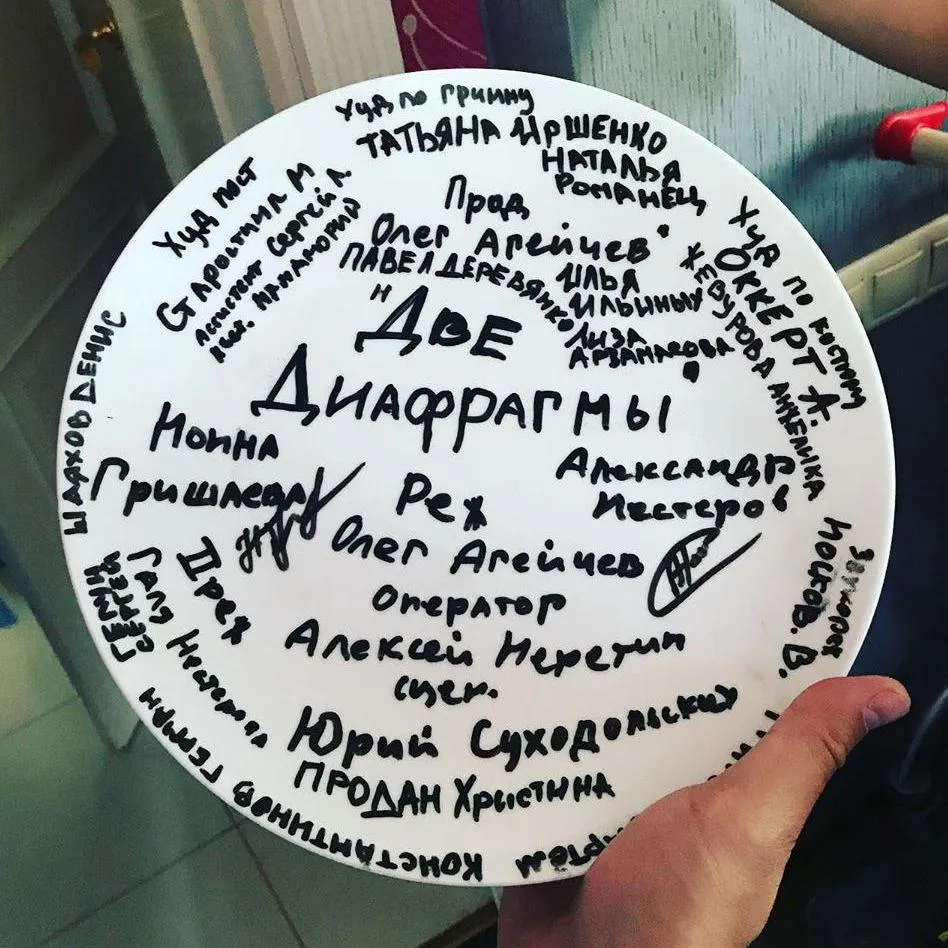 Худ по гриму
ТАТЬЯНА ЙРШЕНКО
НАТАЛЬЯ
РОМАНЕЦ
Худ пост
Старостина М
Ассистент Сергей Л
Прод
Олег Агейчев
ПАВЕЛ ДЕРЕВЯНКО
ИЛЬЯ
ИЛЬИНЫХ
ЛИЗА
АРЗАМАСОВА
Худ по костюму
ОККЕРТ А.
ЖЕВУРОВА АНЖЕЛИКА
"ДВЕ
ДИАФРАГМЫ
ШАХОВ ДЕНИС
Нонна
Гришаева
Александр
Нестеров
Реж
Олег Агейчев
оператор
Алексей Неретин
сцен.
Юрий Суходольский
ПРОДАН Христина
IIреж
Галь Нестерова
СЕРГЕЙ
КОНСТАНТИНОВ ГЕРМАН
Звукореж
НОСКОВ. В.
АРТЁМ